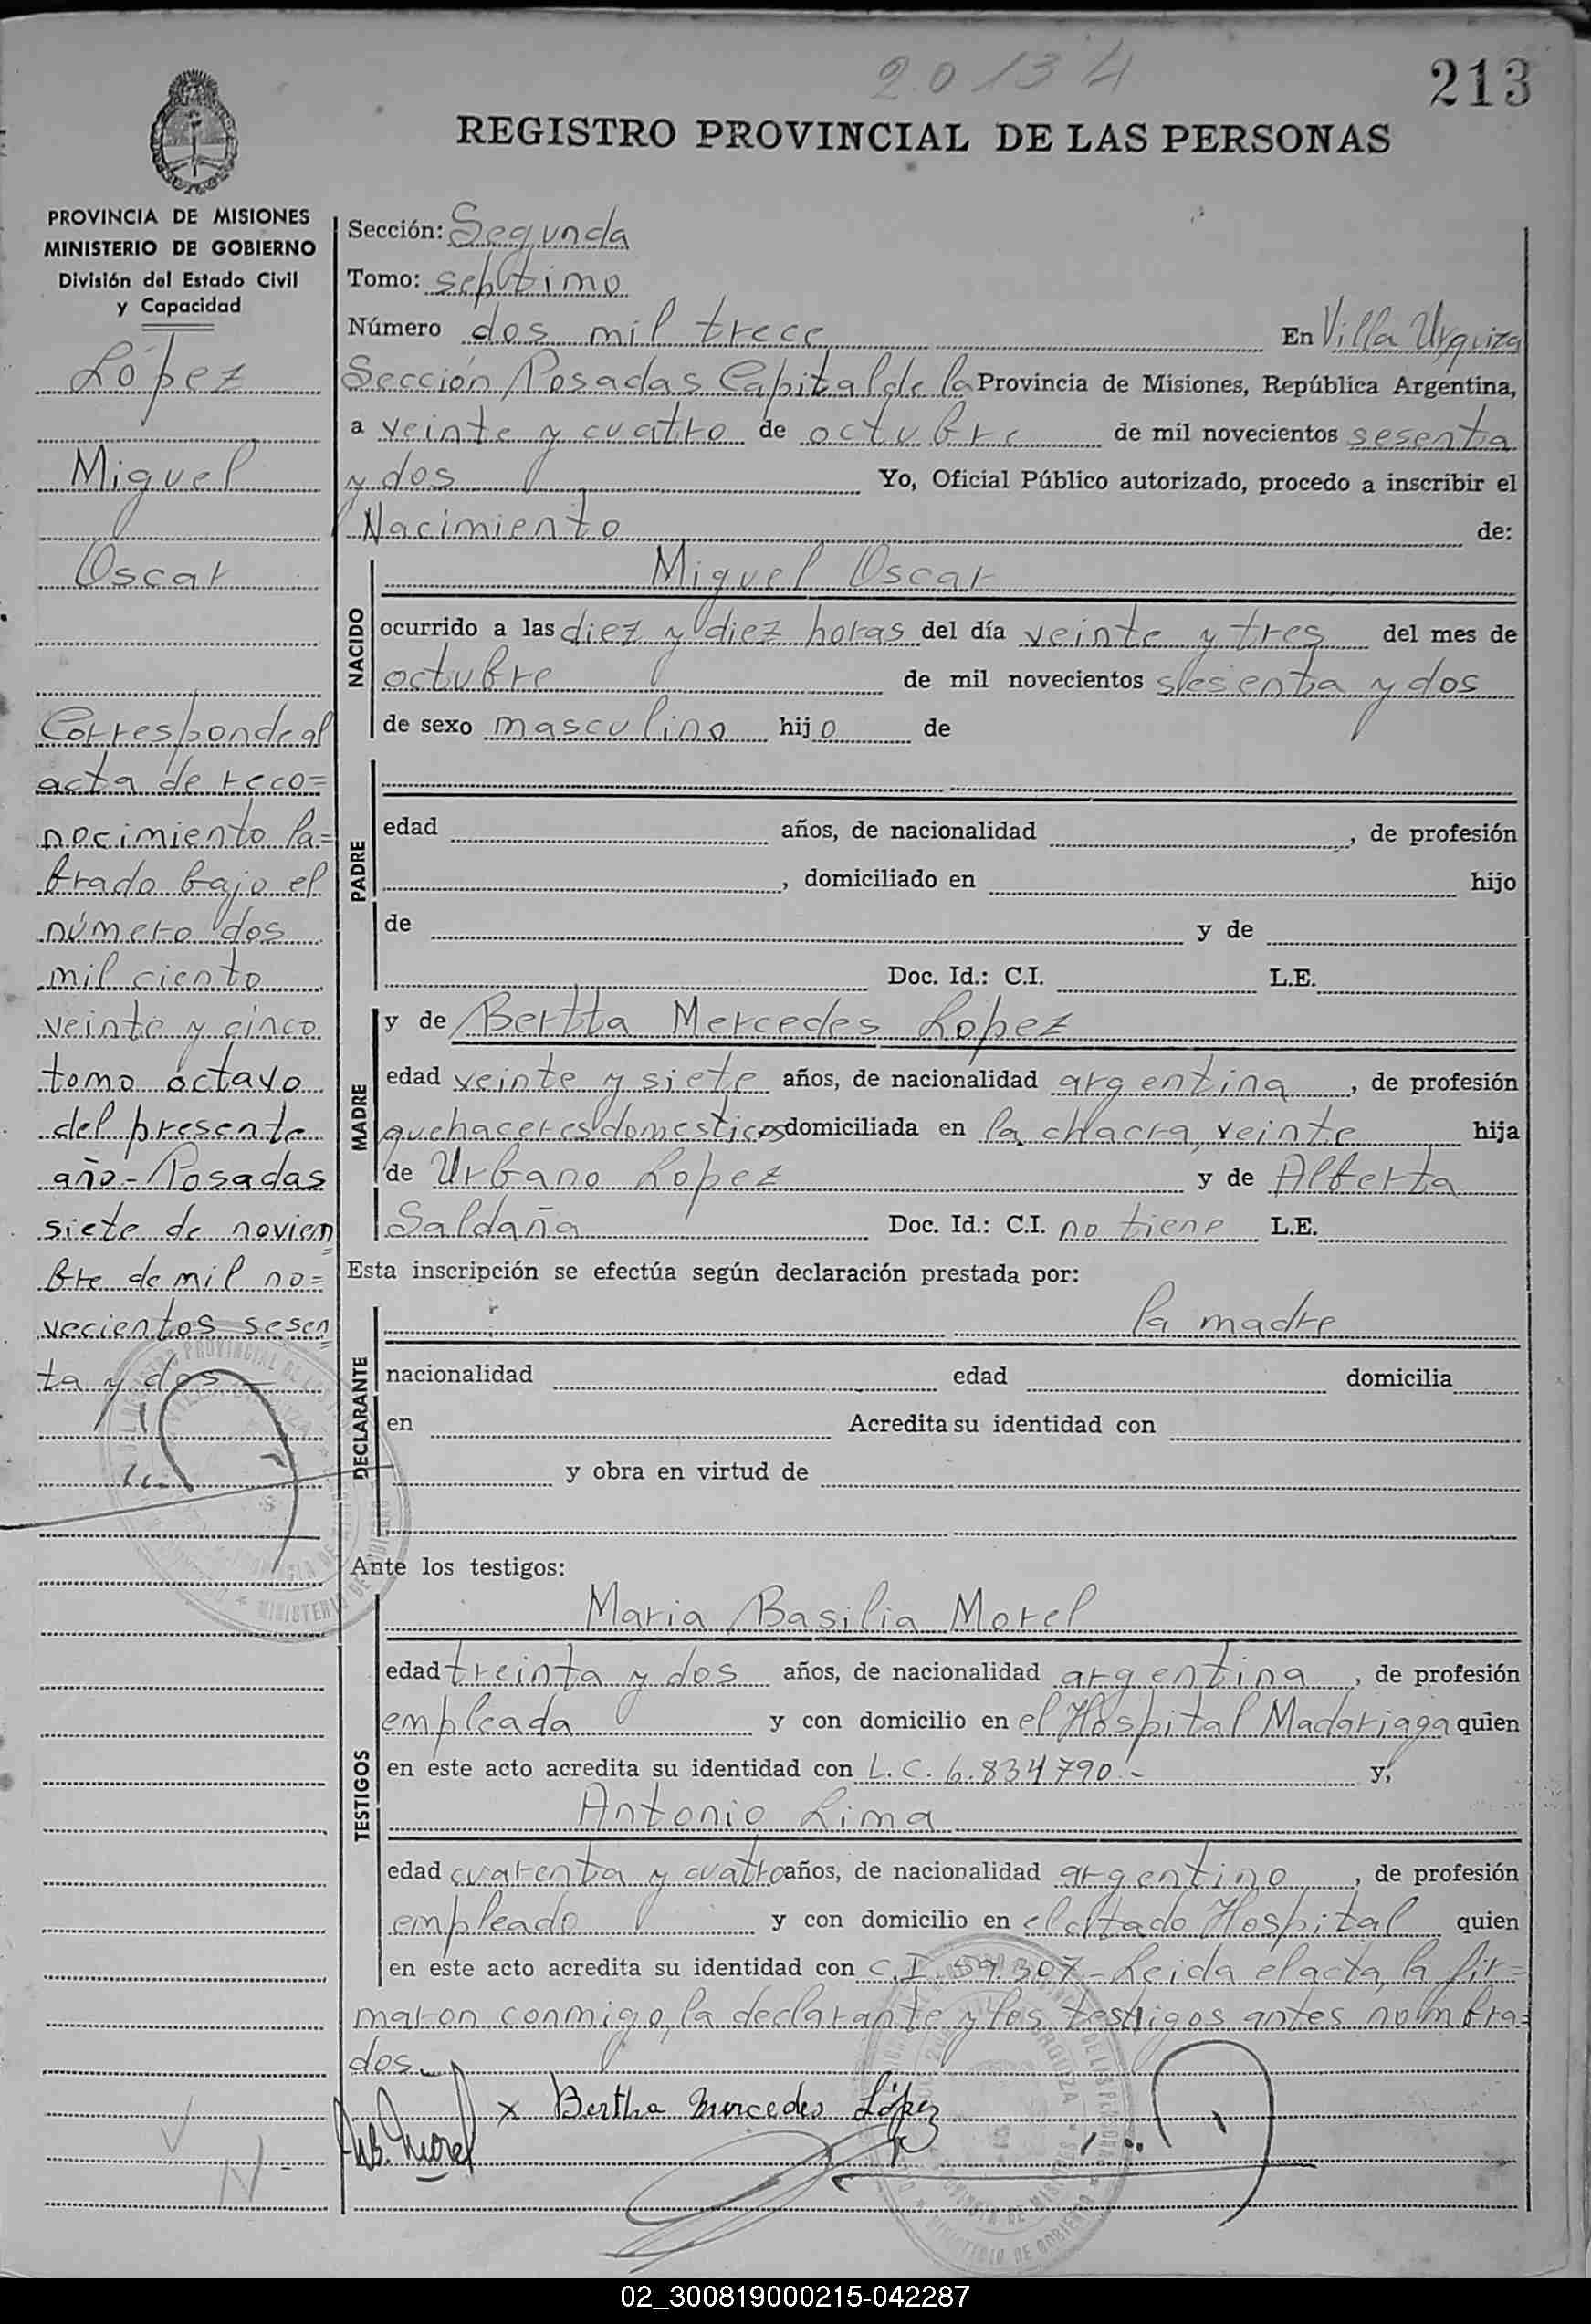 20134
213
REGISTRO PROVINCIAL DE LAS PERSONAS
PROVINCIA DE MISIONES
MINISTERIO DE GOBIERNO
División del Estado Civil
y Capacidad
López
Miguel
Oscar
Corresponde al
acta de reco=
nocimiento la=
brado bajo el
número dos
mil ciento
veinte y cinco
tomo octavo
del presente
año.- Posadas
siete de noviem=
bre de mil no=
vecientos sesen
ta y dos -
Sección: Segunda
Tomo: septimo
Número dos mil trece En Villa Urquiza
Sección Posadas Capital de la Provincia de Misiones, República Argentina,
a veinte y cuatro de octubre de mil novecientos sesenta
y dos Yo, Oficial Público autorizado, procedo a inscribir el
Nacimiento de:
NACIDO
Miguel Oscar
ocurrido a las diez y diez horas del día veinte y tres del mes de
octubre de mil novecientos sesenta y dos
de sexo masculino hijo de
PADRE
edad años, de nacionalidad , de profesión
, domiciliado en hijo
de y de
Doc. Id.: C.I. L.E.
MADRE
y de Bertta Mercedes Lopez
edad veinte y siete años, de nacionalidad argentina , de profesión
quehaceres domesticos domiciliada en la chacra, veinte hija
de Urbano Lopez y de Alberta
Saldaña Doc. Id.: C.I. no tiene L.E.
Esta inscripción se efectúa según declaración prestada por:
DECLARANTE
la madre
nacionalidad edad domicilia
en Acredita su identidad con
y obra en virtud de
Ante los testigos:
TESTIGOS
Maria Basilia Morel
edad treinta y dos años, de nacionalidad argentina , de profesión
empleada y con domicilio en el Hospital Madariaga quien
en este acto acredita su identidad con L.C. 6.834790.- y,
Antonio Lima
edad cuarenta y cuatro años, de nacionalidad argentino , de profesión
empleado y con domicilio en el citado Hospital quien
en este acto acredita su identidad con C.I. 59.307- Leida el acta, la fir=
maron conmigo, la declarante y los testigos antes nombra=
dos.-
MB. Morel x Bertha Mercedes López
02_300819000215-042287